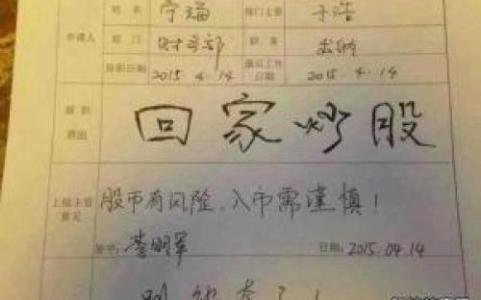 姓名 宁海 部门主管 于浩
申请人 部门 财务部 职务 出纳
辞职日期 2015.4.14 最后工作日期 2015.4.14
辞职
回家炒股
上级主管意见 股市有风险、入市需谨慎！
签字: 李明军 日期: 2015.04.14